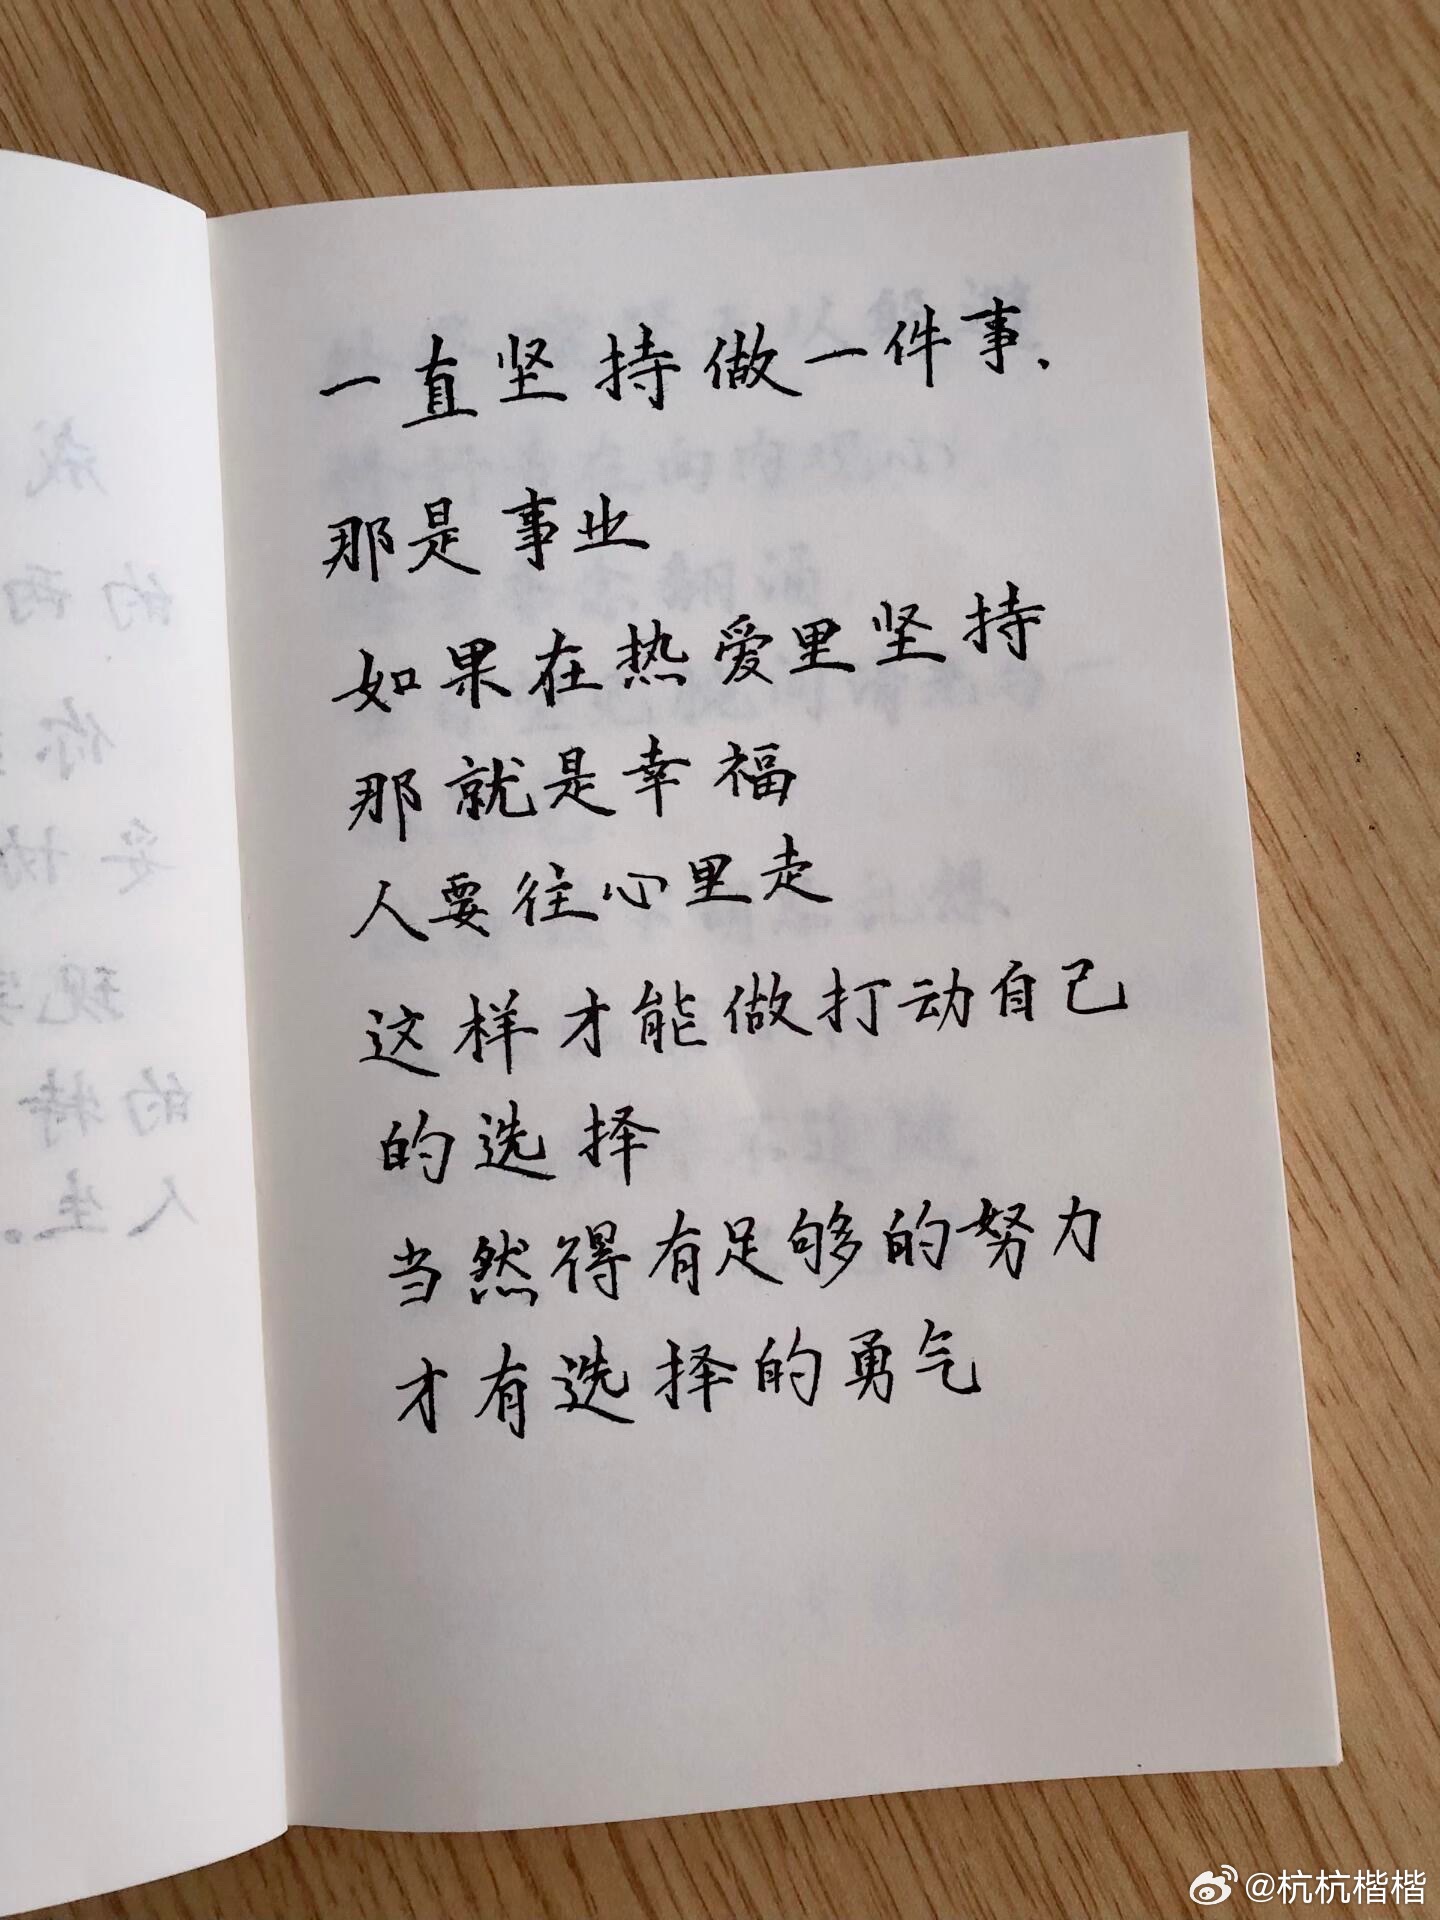 一直坚持做一件事、
那是事业
如果在热爱里坚持
那就是幸福
人要往心里走
这样才能做打动自己
的选择
当然得有足够的努力
才有选择的勇气
@杭杭楷楷